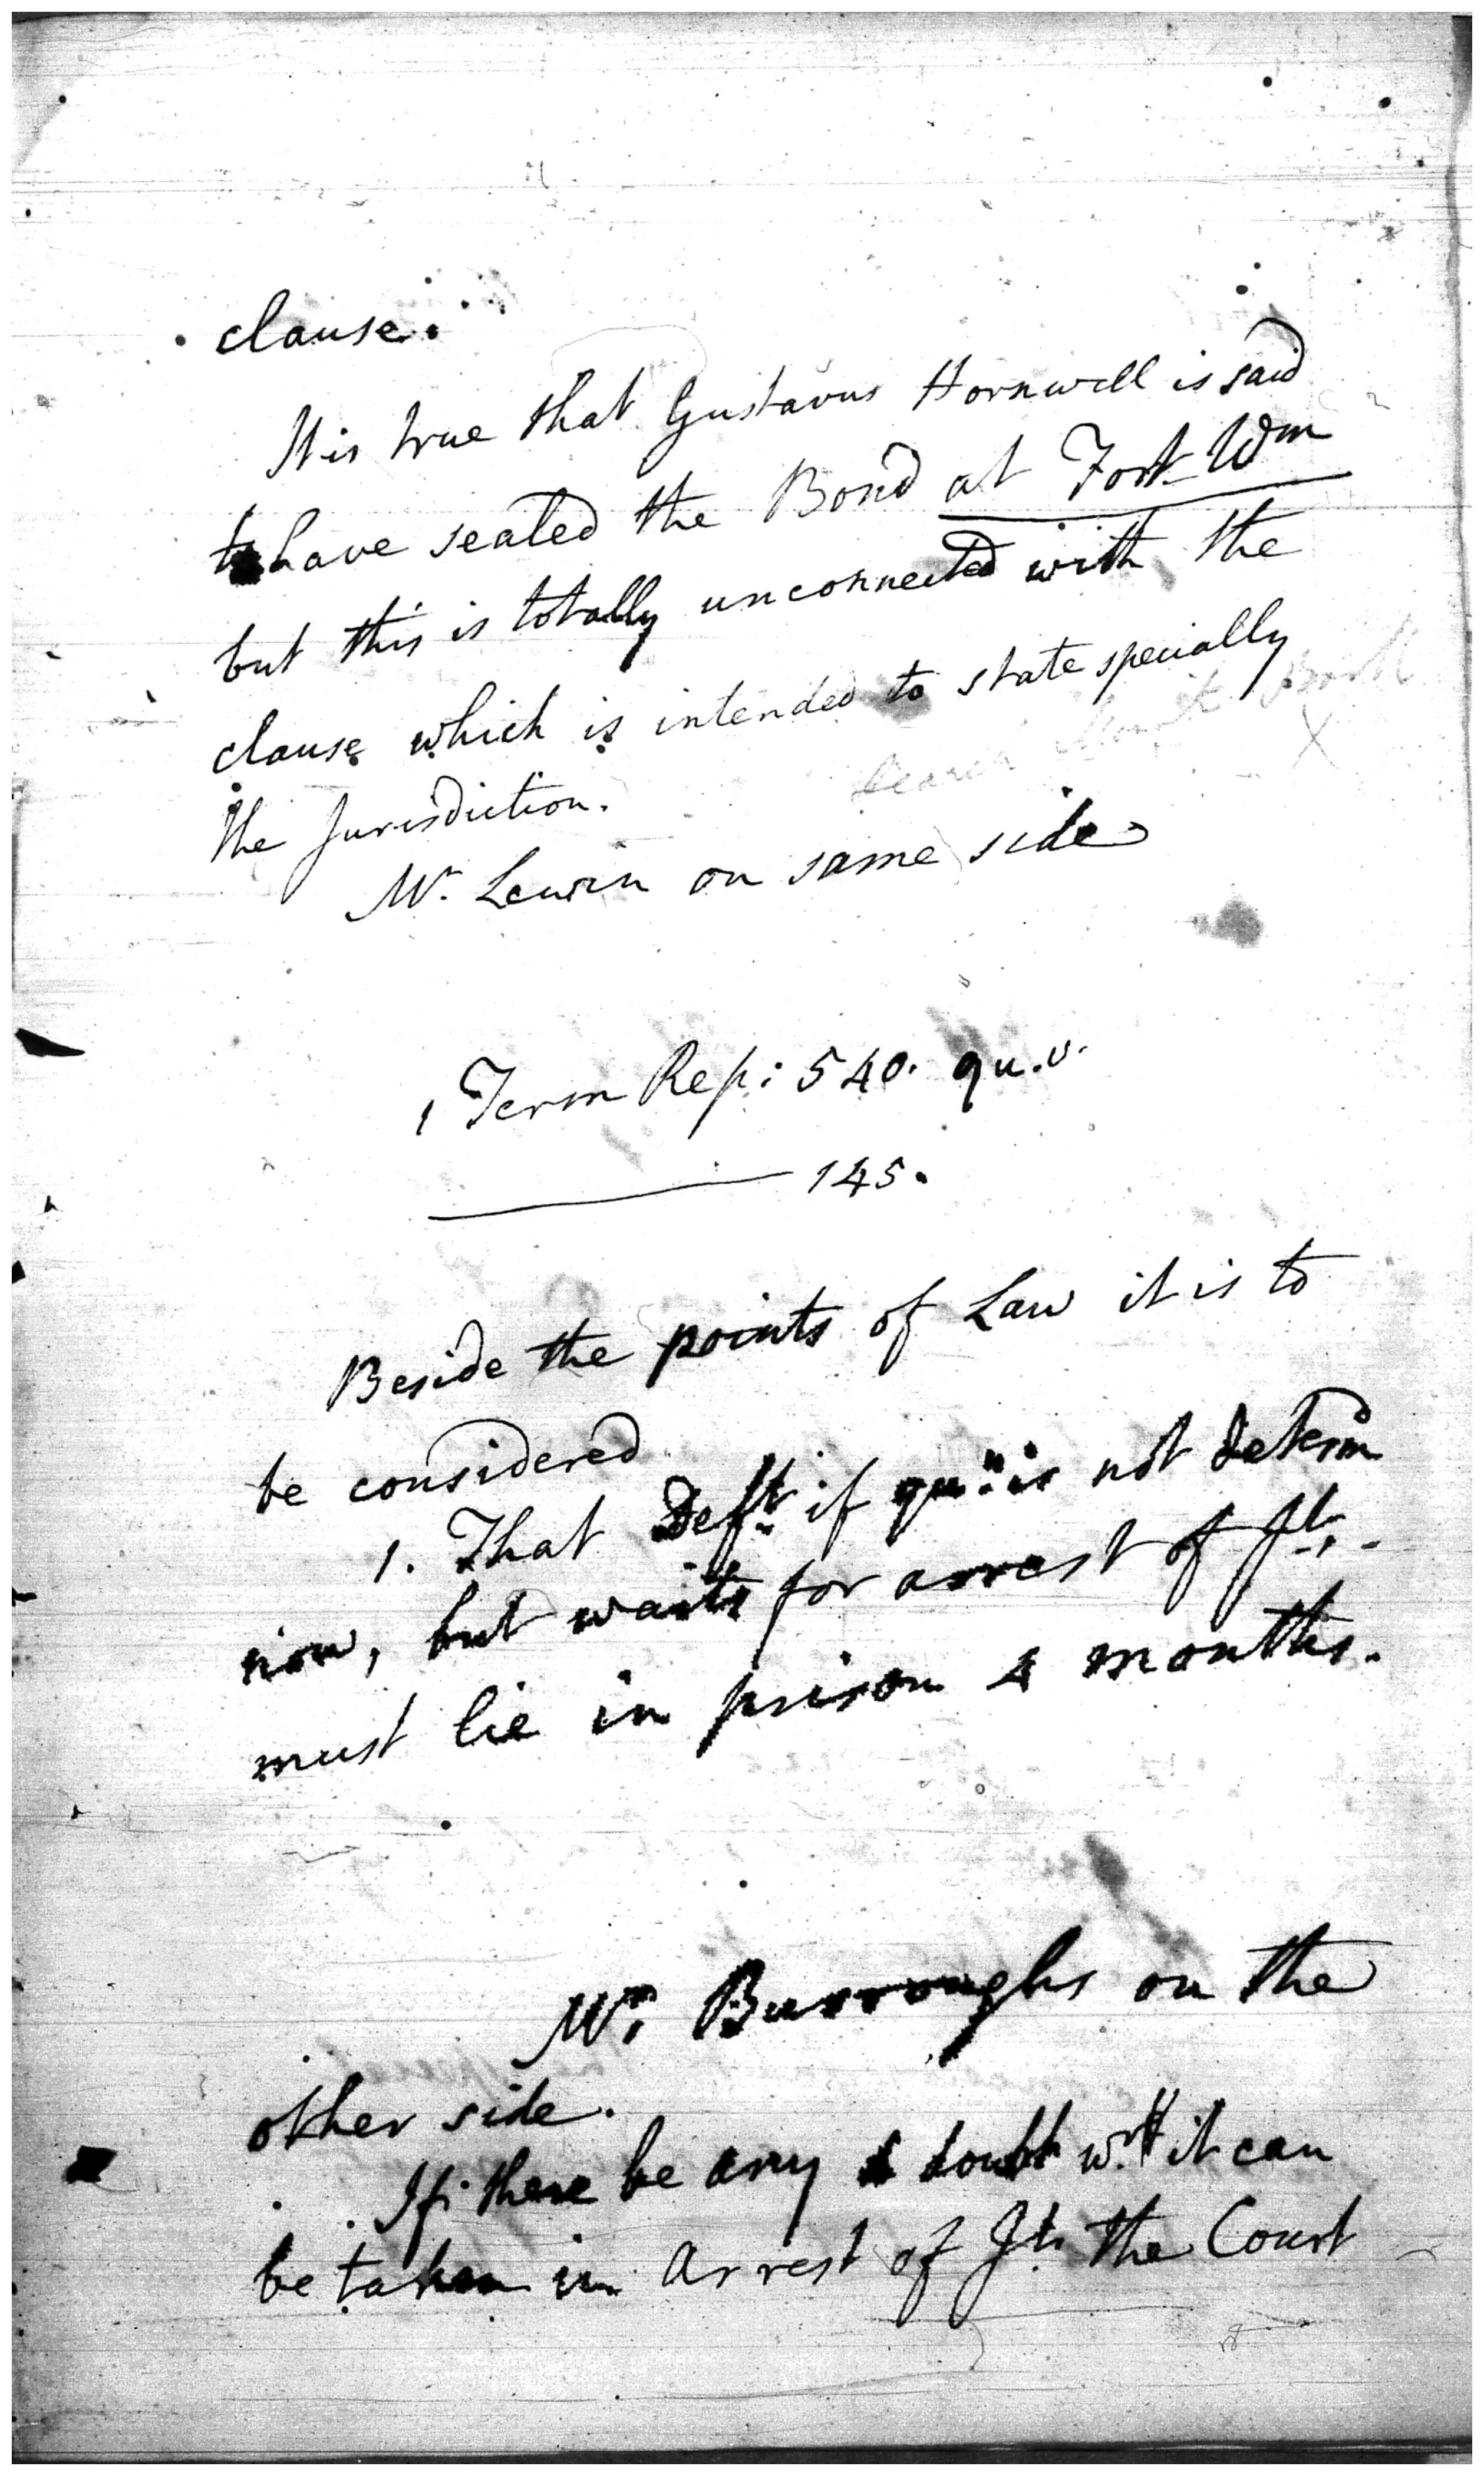 clause.
It is true that Gustavus Hornwell is said
to have sealed the Bond at Fort Wm
but this is totally unconnected with the
clause which is intended to state specially
the Jurisdiction.
Mr. Lewin on same side
1 Term Rep: 540. qu.v.
——— 145.
Beside the points of Law it is to
be considered
1. That Deft. if qun. is not determd
now, but waits for arrest of Jt.
must lie in prison 4 months.
Mr. Burroughs on the
other side.
If there be any doubt wr. it can
be taken in Arrest of Jt. the Court